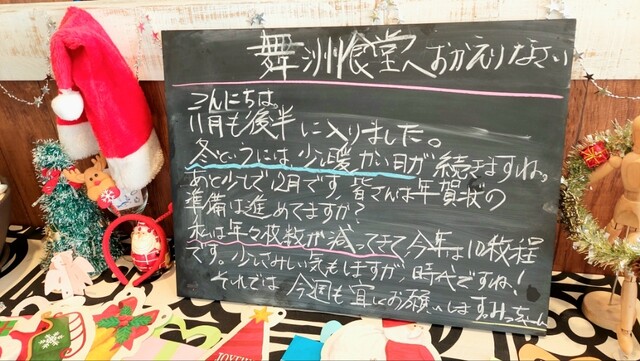 舞洲食堂へおかえりなさい
こんにちは。
11月も後半に入りました。
冬というには、少し暖かい日が続きますね。
あと少しで12月です。皆さんは年賀状の
準備は進めてますか?
私は年々枚数が減ってきて、今年は10枚程
です。少しさみしい気もしますが、時代ですね!
それでは、今週も宜しくお願いします。
JOYEU